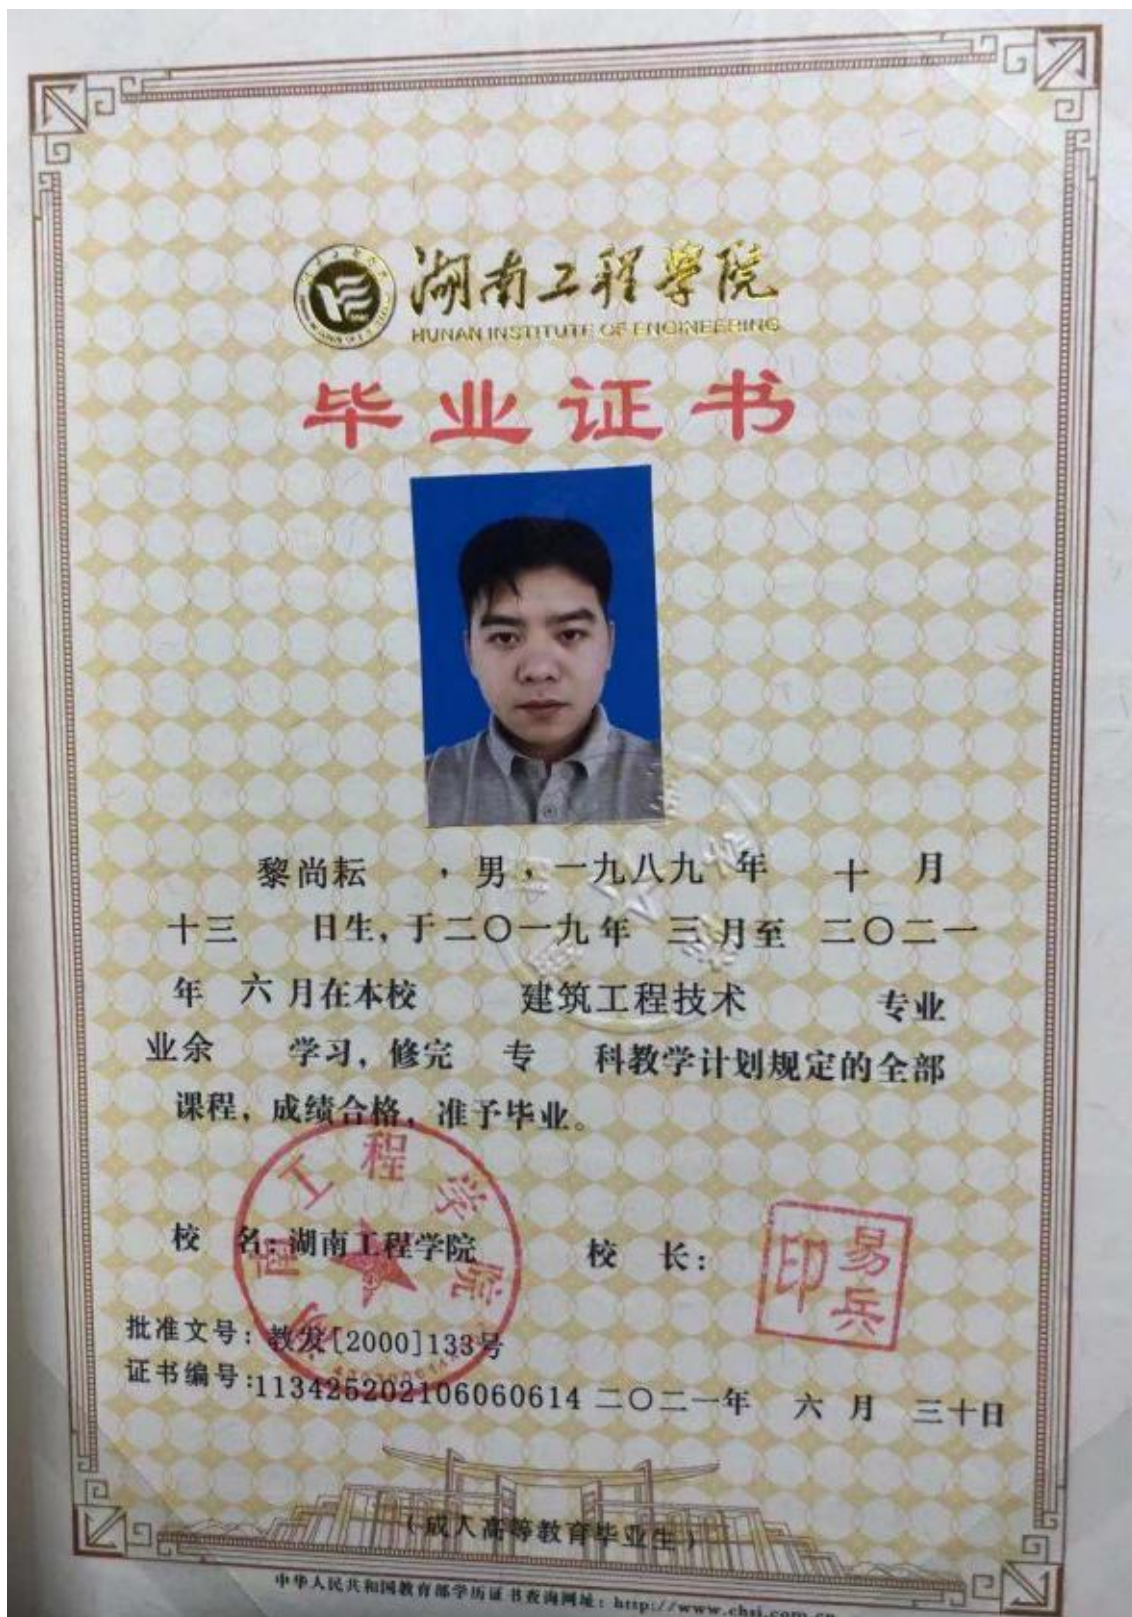 湖南工程学院
HUNAN INSTITUTE OF ENGINEERING
毕业证书
黎尚耘 ，男，一九八九 年 十 月
十三 日生，于二〇一九年 三月至 二〇二一
年 六 月在本校 建筑工程技术 专业
业余 学习，修完 专 科教学计划规定的全部
课程，成绩合格，准予毕业。
校 名：湖南工程学院 校 长：
易兵印
湖南工程学院
批准文号：教发[2000]133号
证书编号：113425202106060614 二〇二一年 六 月 三十日
（成人高等教育毕业生）
中华人民共和国教育部学历证书查询网址：http://www.chsi.com.cn